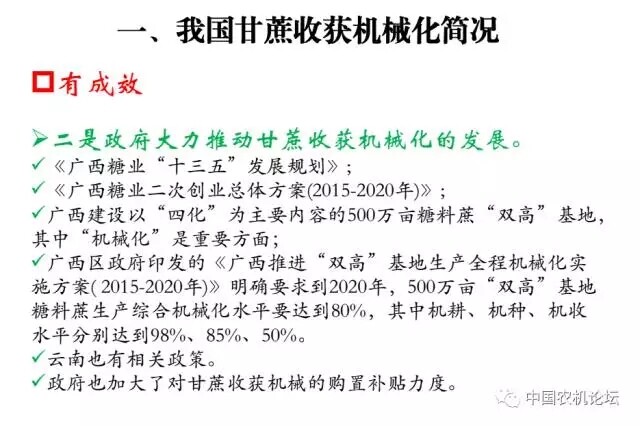 一、我国甘蔗收获机械化简况
有成效
二是政府大力推动甘蔗收获机械化的发展。
✓《广西糖业“十三五”发展规划》;
✓《广西糖业二次创业总体方案(2015-2020年)》;
✓广西建设以“四化”为主要内容的500万亩糖料蔗“双高”基地,
其中“机械化”是重要方面;
✓广西区政府印发的《广西推进“双高”基地生产全程机械化实
施方案( 2015-2020年)》明确要求到2020年，500万亩“双高”基地
糖料蔗生产综合机械化水平要达到80%，其中机耕、机种、机收
水平分别达到98%、85%、50%。
✓云南也有相关政策。
✓政府也加大了对甘蔗收获机械的购置补贴力度。
中国农机论坛